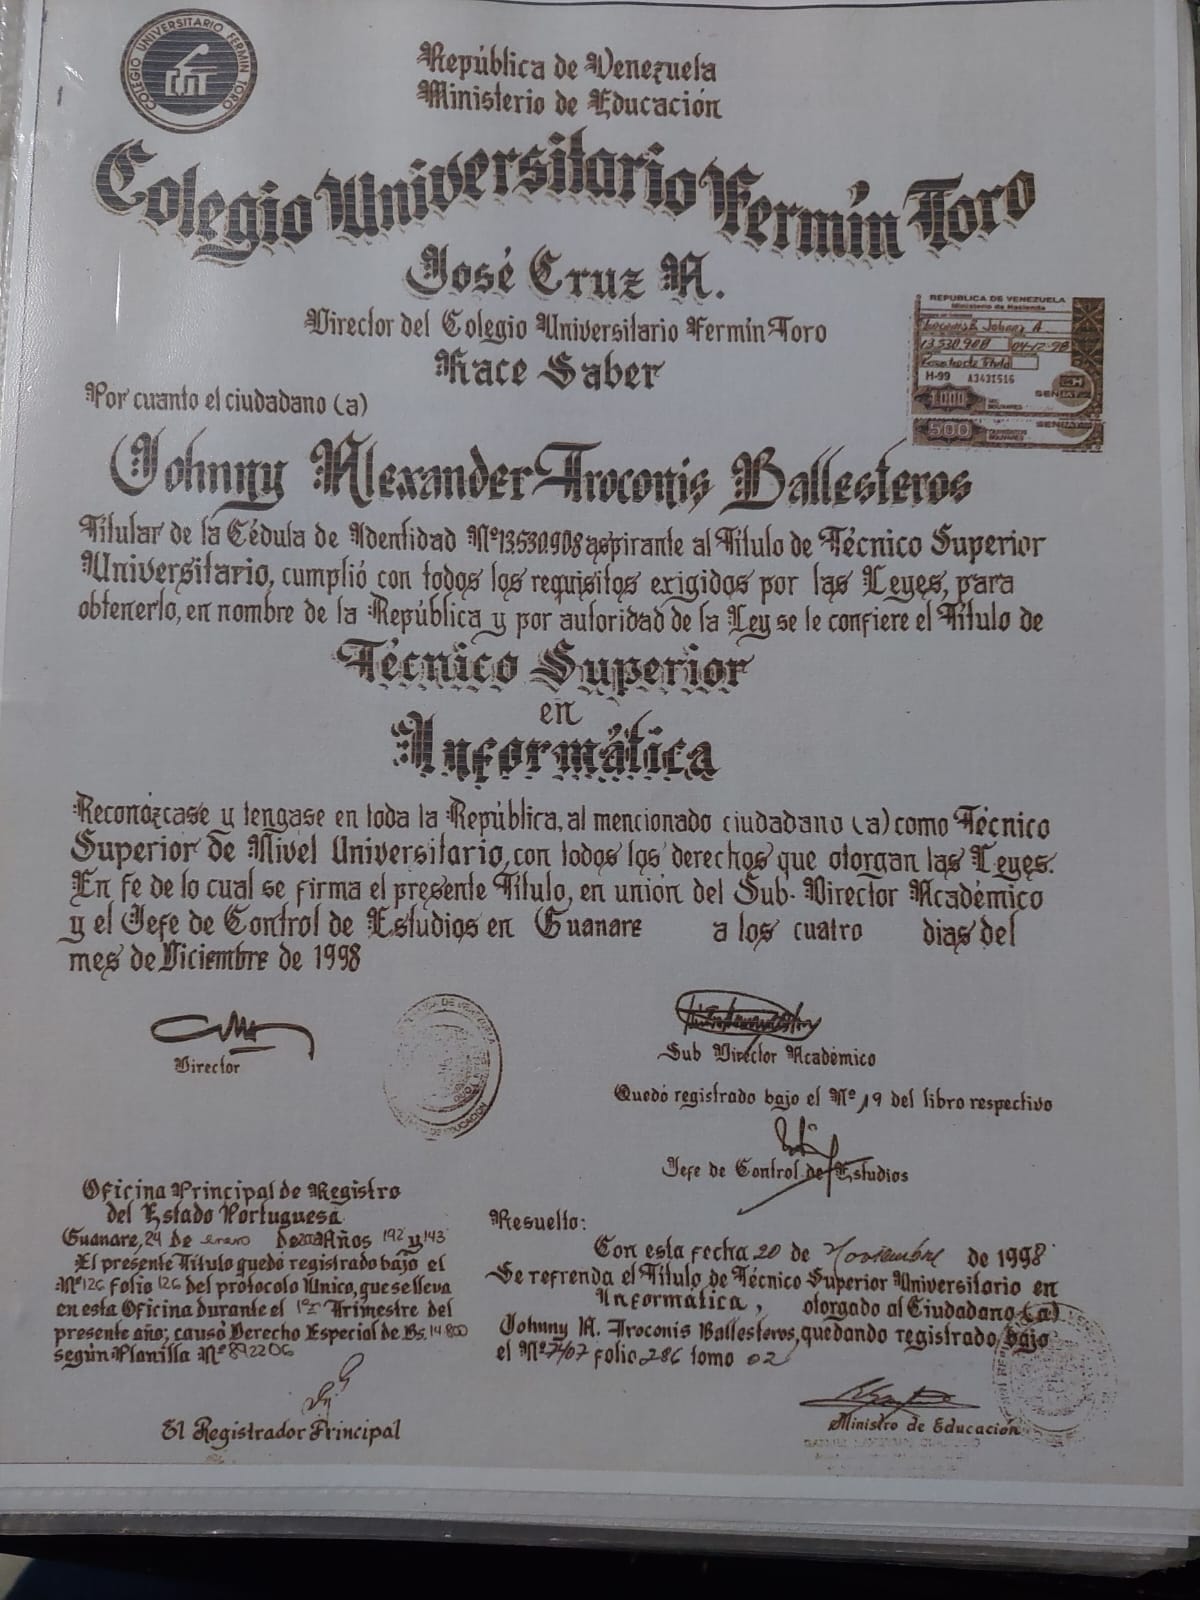 COLEGIO UNIVERSITARIO FERMIN TORO
República de Venezuela
Ministerio de Educación
Colegio Universitario Fermín Toro
José Cruz A.
Director del Colegio Universitario Fermín Toro
Hace Saber
REPUBLICA DE VENEZUELA
Ministerio de Hacienda
13.530.908 04-12-98
H-99 A3431516
1.000
500
Por cuanto el ciudadano (a)
Johnny Alexander Troconis Ballesteros
Titular de la Cédula de Identidad Nº 13.530.908 aspirante al Título de Técnico Superior
Universitario, cumplió con todos los requisitos exigidos por las Leyes, para
obtenerlo, en nombre de la República y por autoridad de la Ley se le confiere el Título de
Técnico Superior
en
Informática
Reconózcase y tengase en toda la República, al mencionado ciudadano (a) como Técnico
Superior de Nivel Universitario, con todos los derechos que otorgan las Leyes.
En fe de lo cual se firma el presente Título, en unión del Sub-Director Académico
y el Jefe de Control de Estudios en Guanare a los cuatro dias del
mes de Diciembre de 1998
Director
Sub Director Académico
Quedó registrado bajo el Nº 19 del libro respectivo
Jefe de Control de Estudios
Oficina Principal de Registro
del Estado Portuguesa
Guanare, 24 de enero de Años 192 y 143
El presente Título quedó registrado bajo el
Nº 126 folio 126 del protocolo Unico, que se lleva
en esta Oficina durante el 1er Trimestre del
presente año; causó Derecho Especial de Bs. 14.800
según Planilla Nº 892206
El Registrador Principal
Resuelto:
Con esta fecha 20 de Noviembre de 1998
Se refrenda el Título de Técnico Superior Universitario en
Informática, otorgado al Ciudadano (a)
Johnny A. Troconis Ballesteros, quedando registrado bajo
el Nº 7407 folio 286 tomo 02
Ministro de Educación